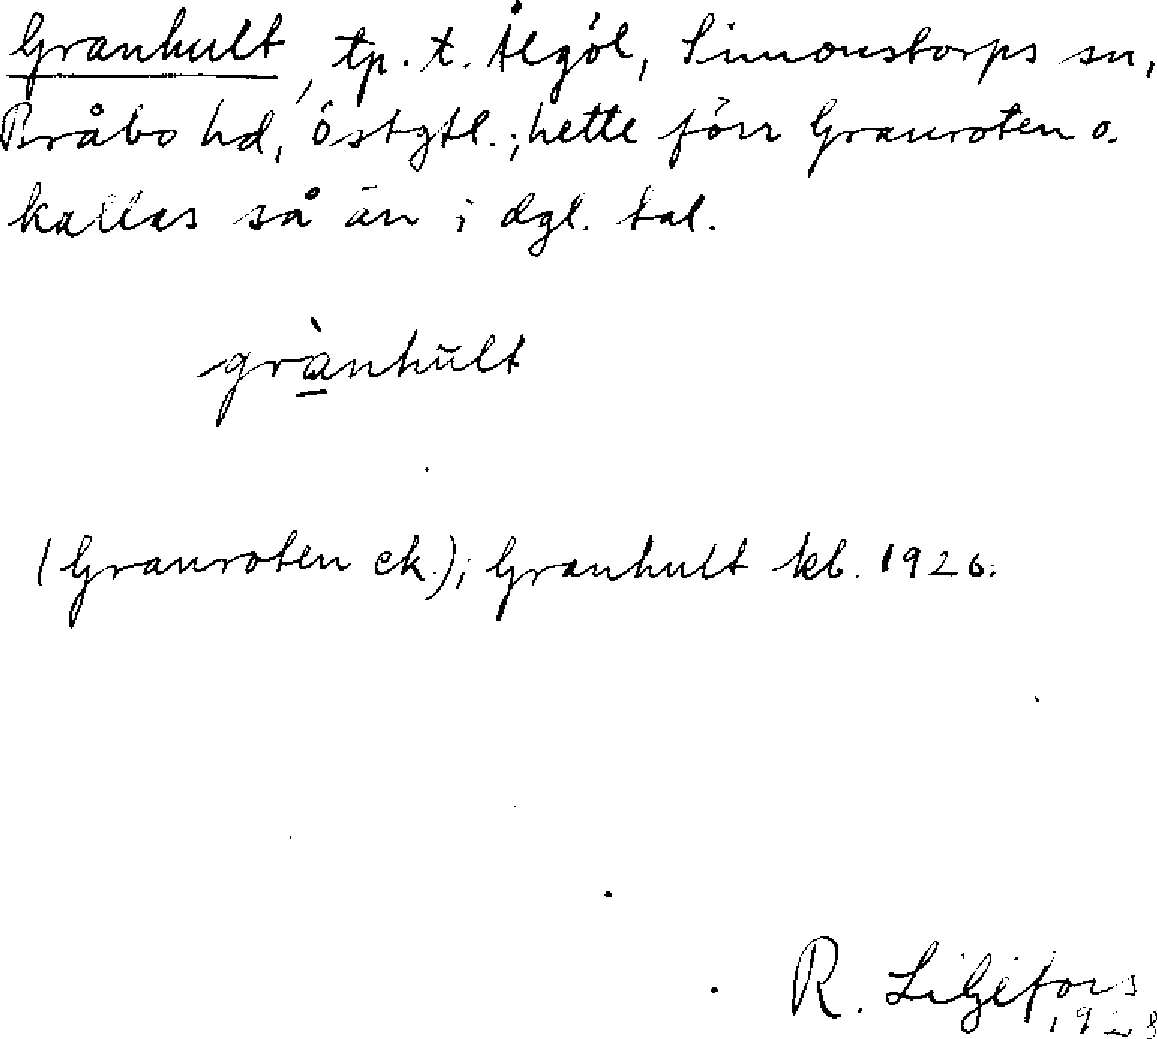 Granhult, tp. t. Älgöl, Simonstorps sn,
Bråbo hd, Östgtl.; hette förr Granroten o.
kallas så än i dgl. tal.
grànhult
(Granroten ek.); Granhult kb. 1926.
R. Liljefors
1928